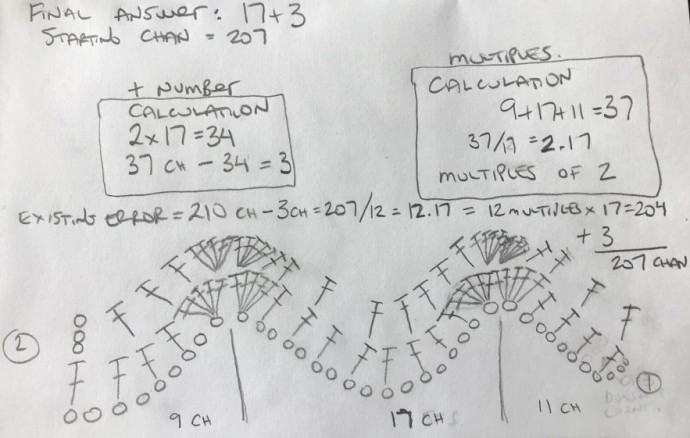 FINAL ANSWER: 17+3
STARTING CHAN = 207
+ NUMBER
CALCULATION
2x17=34
37 CH - 34 = 3
MULTIPLES.
CALCULATION
9+17+11=37
37/17 = 2.17
MULTIPLES OF 2
EXISTING ERROR = 210 CH-3CH=207/12=12.17 = 12 MULTIPLES x 17=204
+ 3
207 CHAN
2
1
9 CH
17 CH
11 CH